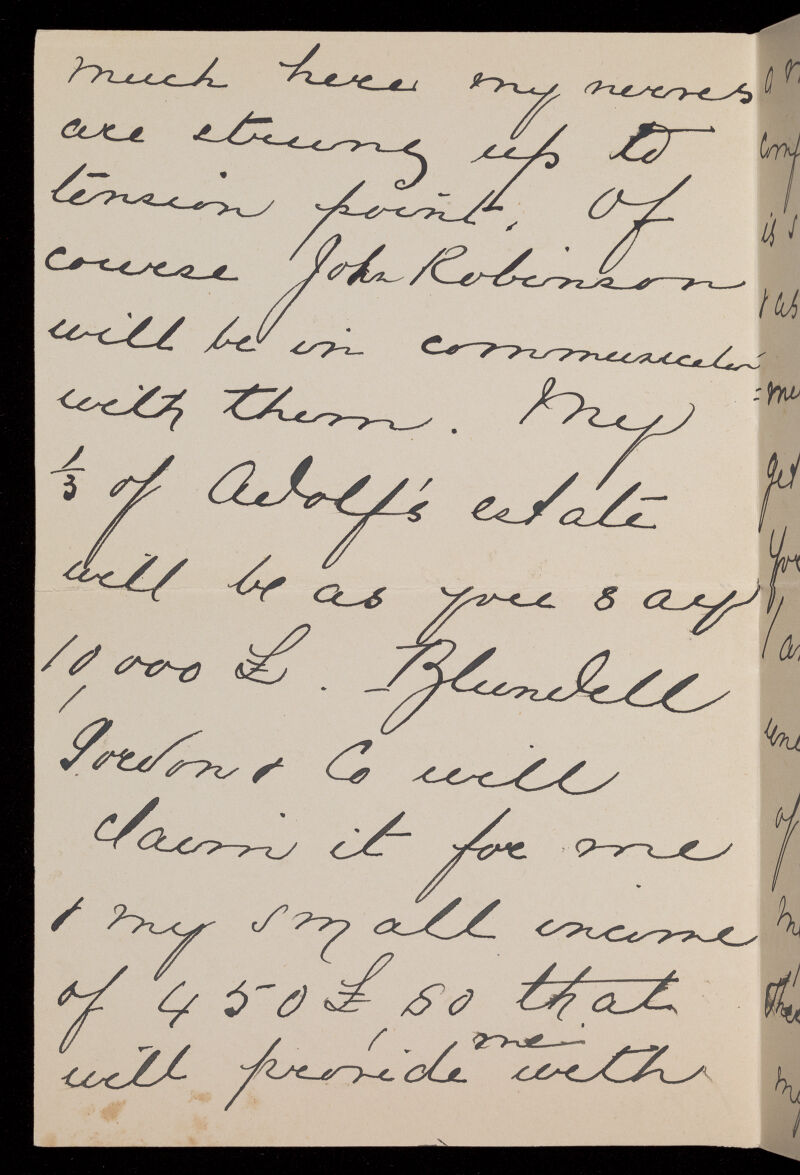 much here my nerves
are strung up to
tension point. Of
course John Robinson
will be in communication
with them. My
1/3 of Adolf's estate
will be as you say
10,000 £. Blundell
Gordon & Co will
claim it for me
& my small income
of 450 £, so that
will provide me with